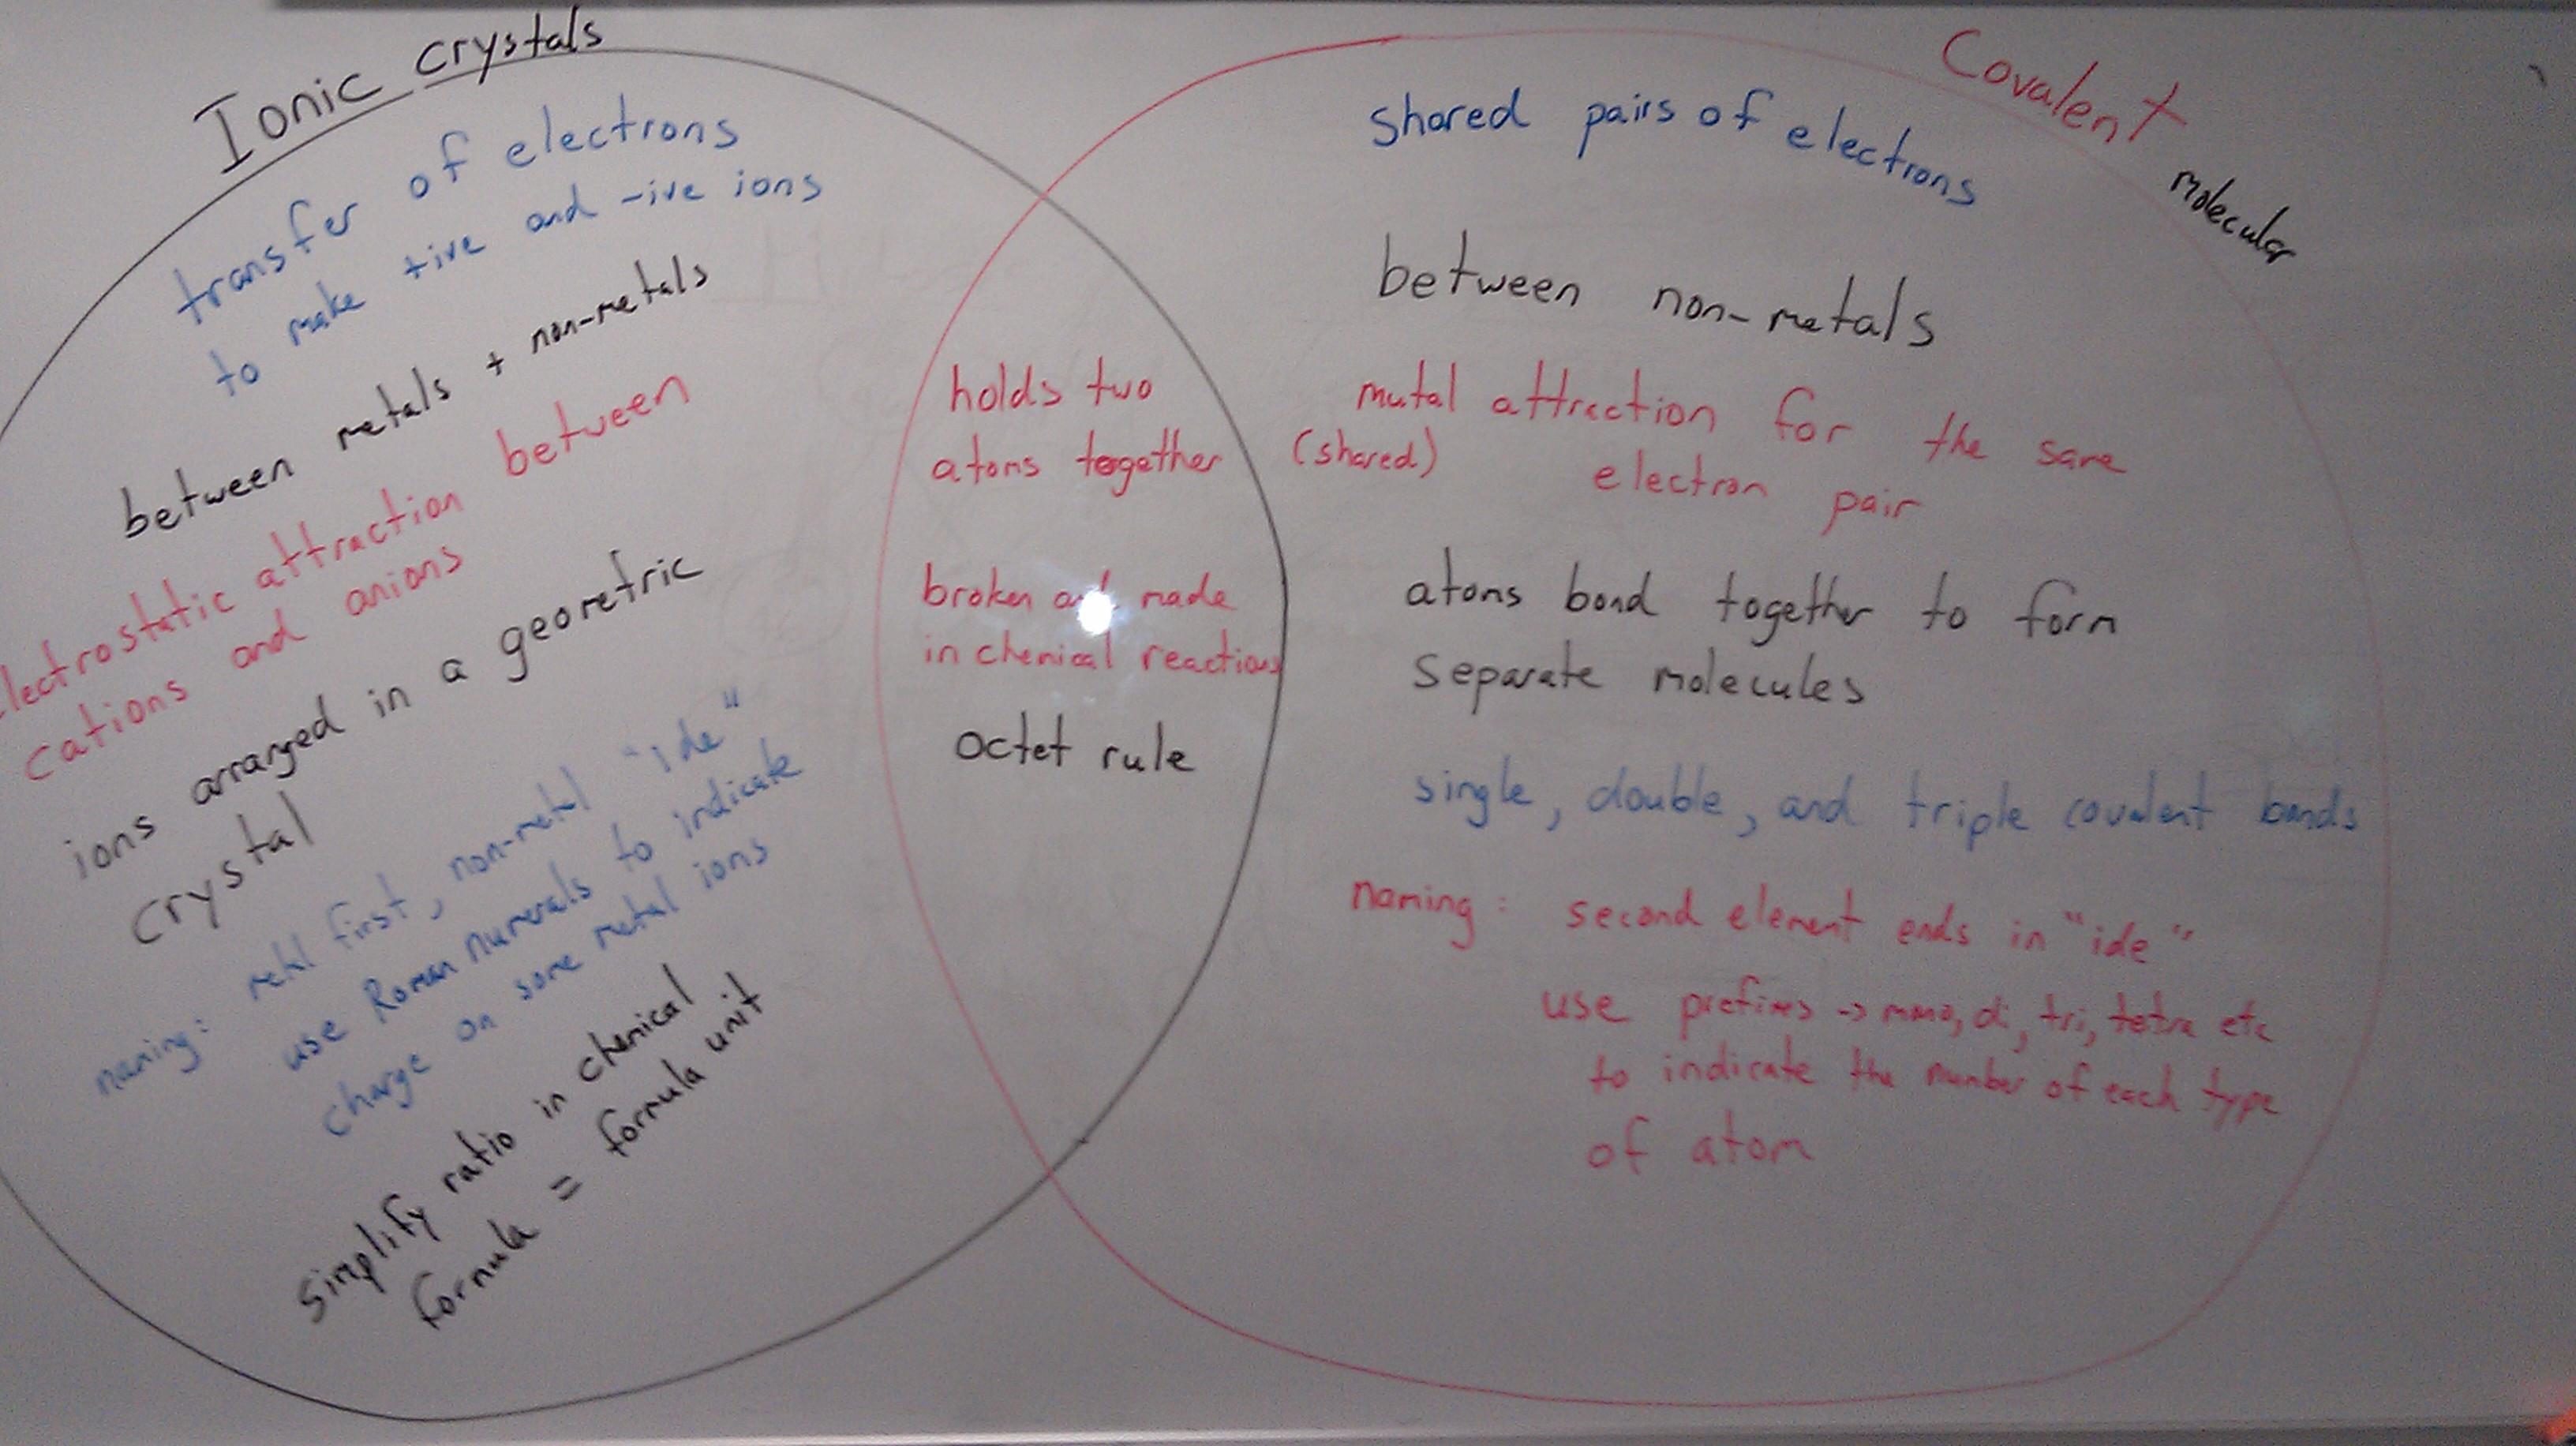 Ionic crystals
transfer of electrons
to make +ive and -ive ions
between metals + non-metals
electrostatic attraction between
cations and anions
ions arranged in a geometric
crystal
naming: metal first, non-metal "ide"
use Roman numerals to indicate
charge on some metal ions
simplify ratio in chemical
formula = formula unit
holds two
atoms together
broken and made
in chemical reactions
octet rule
Covalent
molecular
shared pairs of electrons
between non-metals
mutal attraction for the same
(shared) electron pair
atoms bond together to form
separate molecules
single, double, and triple covalent bonds
naming: second element ends in "ide"
use prefixes -> mono, di, tri, tetra etc
to indicate the number of each type
of atom